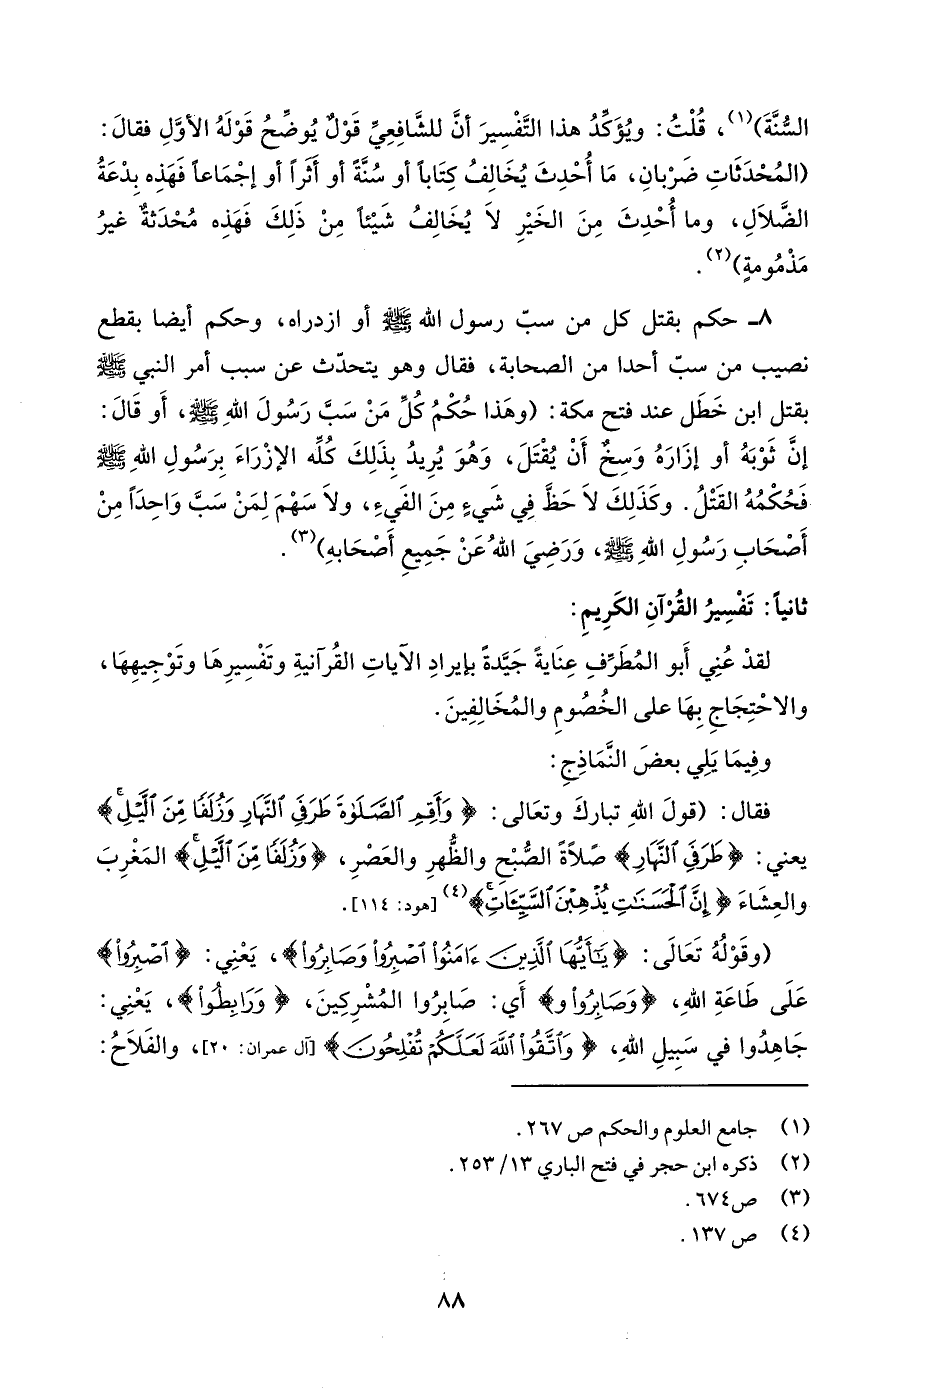 السُّنَّةَ)(١)، قُلْتُ: ويُؤَكِّدُ هذا التَّفْسِيرَ أنَّ للشَّافِعِيِّ قَوْلٌ يُوضِّحُ قَوْلَهُ الأوَّلِ فقالَ:
(المُحْدَثَاتِ ضَرْبانِ، مَا أُحْدِثَ يُخَالِفُ كِتَاباً أو سُنَّةً أو أَثَراً أو إجْمَاعاً فَهَذِه بِدْعَةُ
الضَّلاَلِ، وما أُحْدِثَ مِنَ الخَيْرِ لاَ يُخَالِفُ شَيْئاً مِنْ ذَلِكَ فَهَذِه مُحْدَثةٌ غيرُ
مَذْمُومةٍ)(٢).
٨ـ حكم بقتل كل من سبّ رسول الله ﷺ أو ازدراه، وحكم أيضا بقطع
نصيب من سبّ أحدا من الصحابة، فقال وهو يتحدّث عن سبب أمر النبي ﷺ
بقتل ابن خَطَل عند فتح مكة: (وهَذا حُكْمُ كُلِّ مَنْ سَبَّ رَسُولَ اللهِ ﷺ، أَو قَالَ:
إنَّ ثَوْبَهُ أو إزَارَهُ وَسِخٌ أَنْ يُقْتَلَ، وَهُوَ يُرِيدُ بِذَلِكَ كُلِّه الإزْرَاءَ بِرَسُولِ اللهِ ﷺ
فَحُكْمُهُ القَتْلُ. وكَذَلِكَ لاَ حَظَّ فِي شَيءٍ مِنَ الفَيءِ، ولاَ سَهْمَ لِمَنْ سَبَّ وَاحِدَاً مِنْ
أَصْحَابِ رَسُولِ اللهِ ﷺ، وَرَضِيَ اللهُ عَنْ جَمِيعِ أَصْحَابهِ)(٣).
ثانياً: تَفْسِيرُ القُرْآنِ الكَرِيمِ:
لقدْ عُنِي أبو المُطَرِّفِ عِنايةً جَيَّدةً بإيرادِ الآياتِ القُرآنيةِ وتَفْسِيرِهَا وتَوْجِيهِهَا،
والاحْتِجَاجِ بِهَا على الخُصُومِ والمُخَالِفِينَ.
وفِيمَا يَلِي بعضَ النَّمَاذِجِ:
فقال: (قولَ اللهِ تباركَ وتعَالى: ﴿ وَأَقِمِ ٱلصَّلَوٰةَ طَرَفَيِ ٱلنَّهَارِ وَزُلَفًا مِّنَ ٱلَّيْلِ ۚ﴾
يعني: ﴿ طَرَفَيِ ٱلنَّهَارِ﴾ صَلاَةَ الصُّبْحِ والظُّهرِ والعَصْرِ، ﴿ وَزُلَفًا مِّنَ ٱلَّيْلِ ۚ﴾ المَغْرِبَ
والعِشَاءَ ﴿ إِنَّ ٱلْحَسَنَٰتِ يُذْهِبْنَ ٱلسَّيِّـَٔاتِ ۚ﴾(٤) [هود: ١١٤].
(وقَوْلُهُ تَعَالَى: ﴿ يَٰٓأَيُّهَا ٱلَّذِينَ ءَامَنُوا۟ ٱصْبِرُوا۟ وَصَابِرُوا۟ ﴾، يَعْنِي: ﴿ ٱصْبِرُوا۟ ﴾
عَلَى طَاعَةِ اللهِ، ﴿ وَصَابِرُوا۟ و﴾ أَي: صَابِرُوا المُشْرِكِينَ، ﴿ وَرَابِطُوا۟ ﴾، يَعْنِي:
جَاهِدُوا في سَبِيلِ اللهِ، ﴿ وَٱتَّقُوا۟ ٱللَّهَ لَعَلَّكُمْ تُفْلِحُونَ ﴾ [آل عمران: ٢٠]، والفَلاَحُ:
(١) جامع العلوم والحكم ص ٢٦٧.
(٢) ذكره ابن حجر في فتح الباري ١٣/ ٢٥٣.
(٣) ص٦٧٤.
(٤) ص ١٣٧.
٨٨